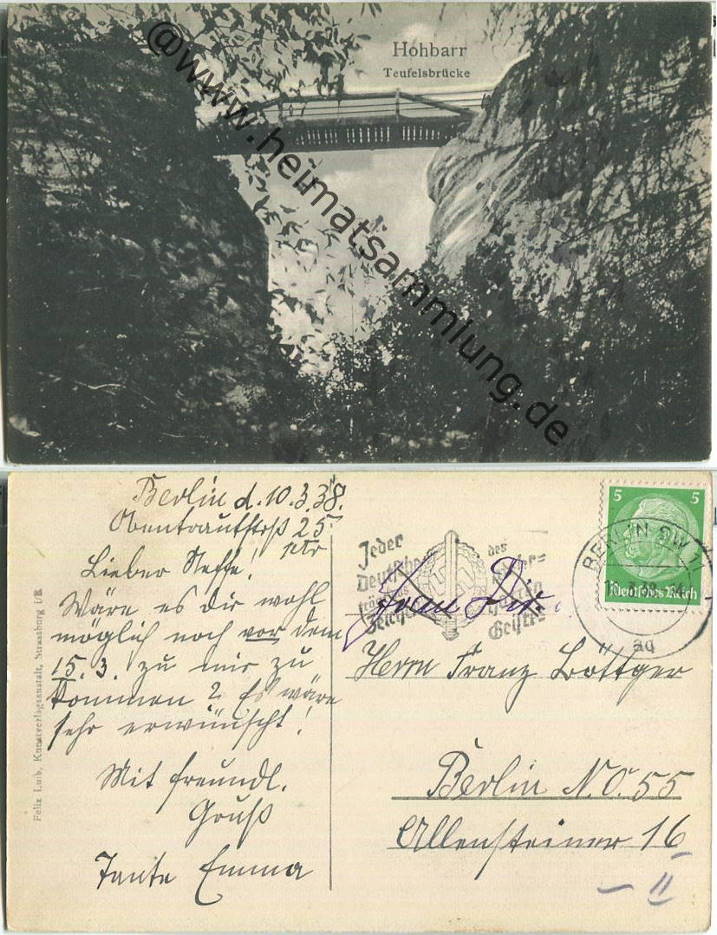 Hohbarr
Teufelsbrücke
@www.heimatsammlung.de
Berlin d. 10.3.38.
Obentrautstrß 25
ptr
Lieber Neffe!
Wäre es dir wohl
möglich noch vor dem
15.3. zu mir zu
kommen? Es wäre
sehr erwünscht!
Mit freundl.
Gruß
Tante Emma
Felix Luib, Kunstverlagsanstalt, Strassburg i/E
Jeder
Deutsche
des
BERLIN SW 11
5 5
Deutsches Reich
aq
Frau
Herrn Franz Böttger
Berlin N.O. 55
Allensteiner 16
II